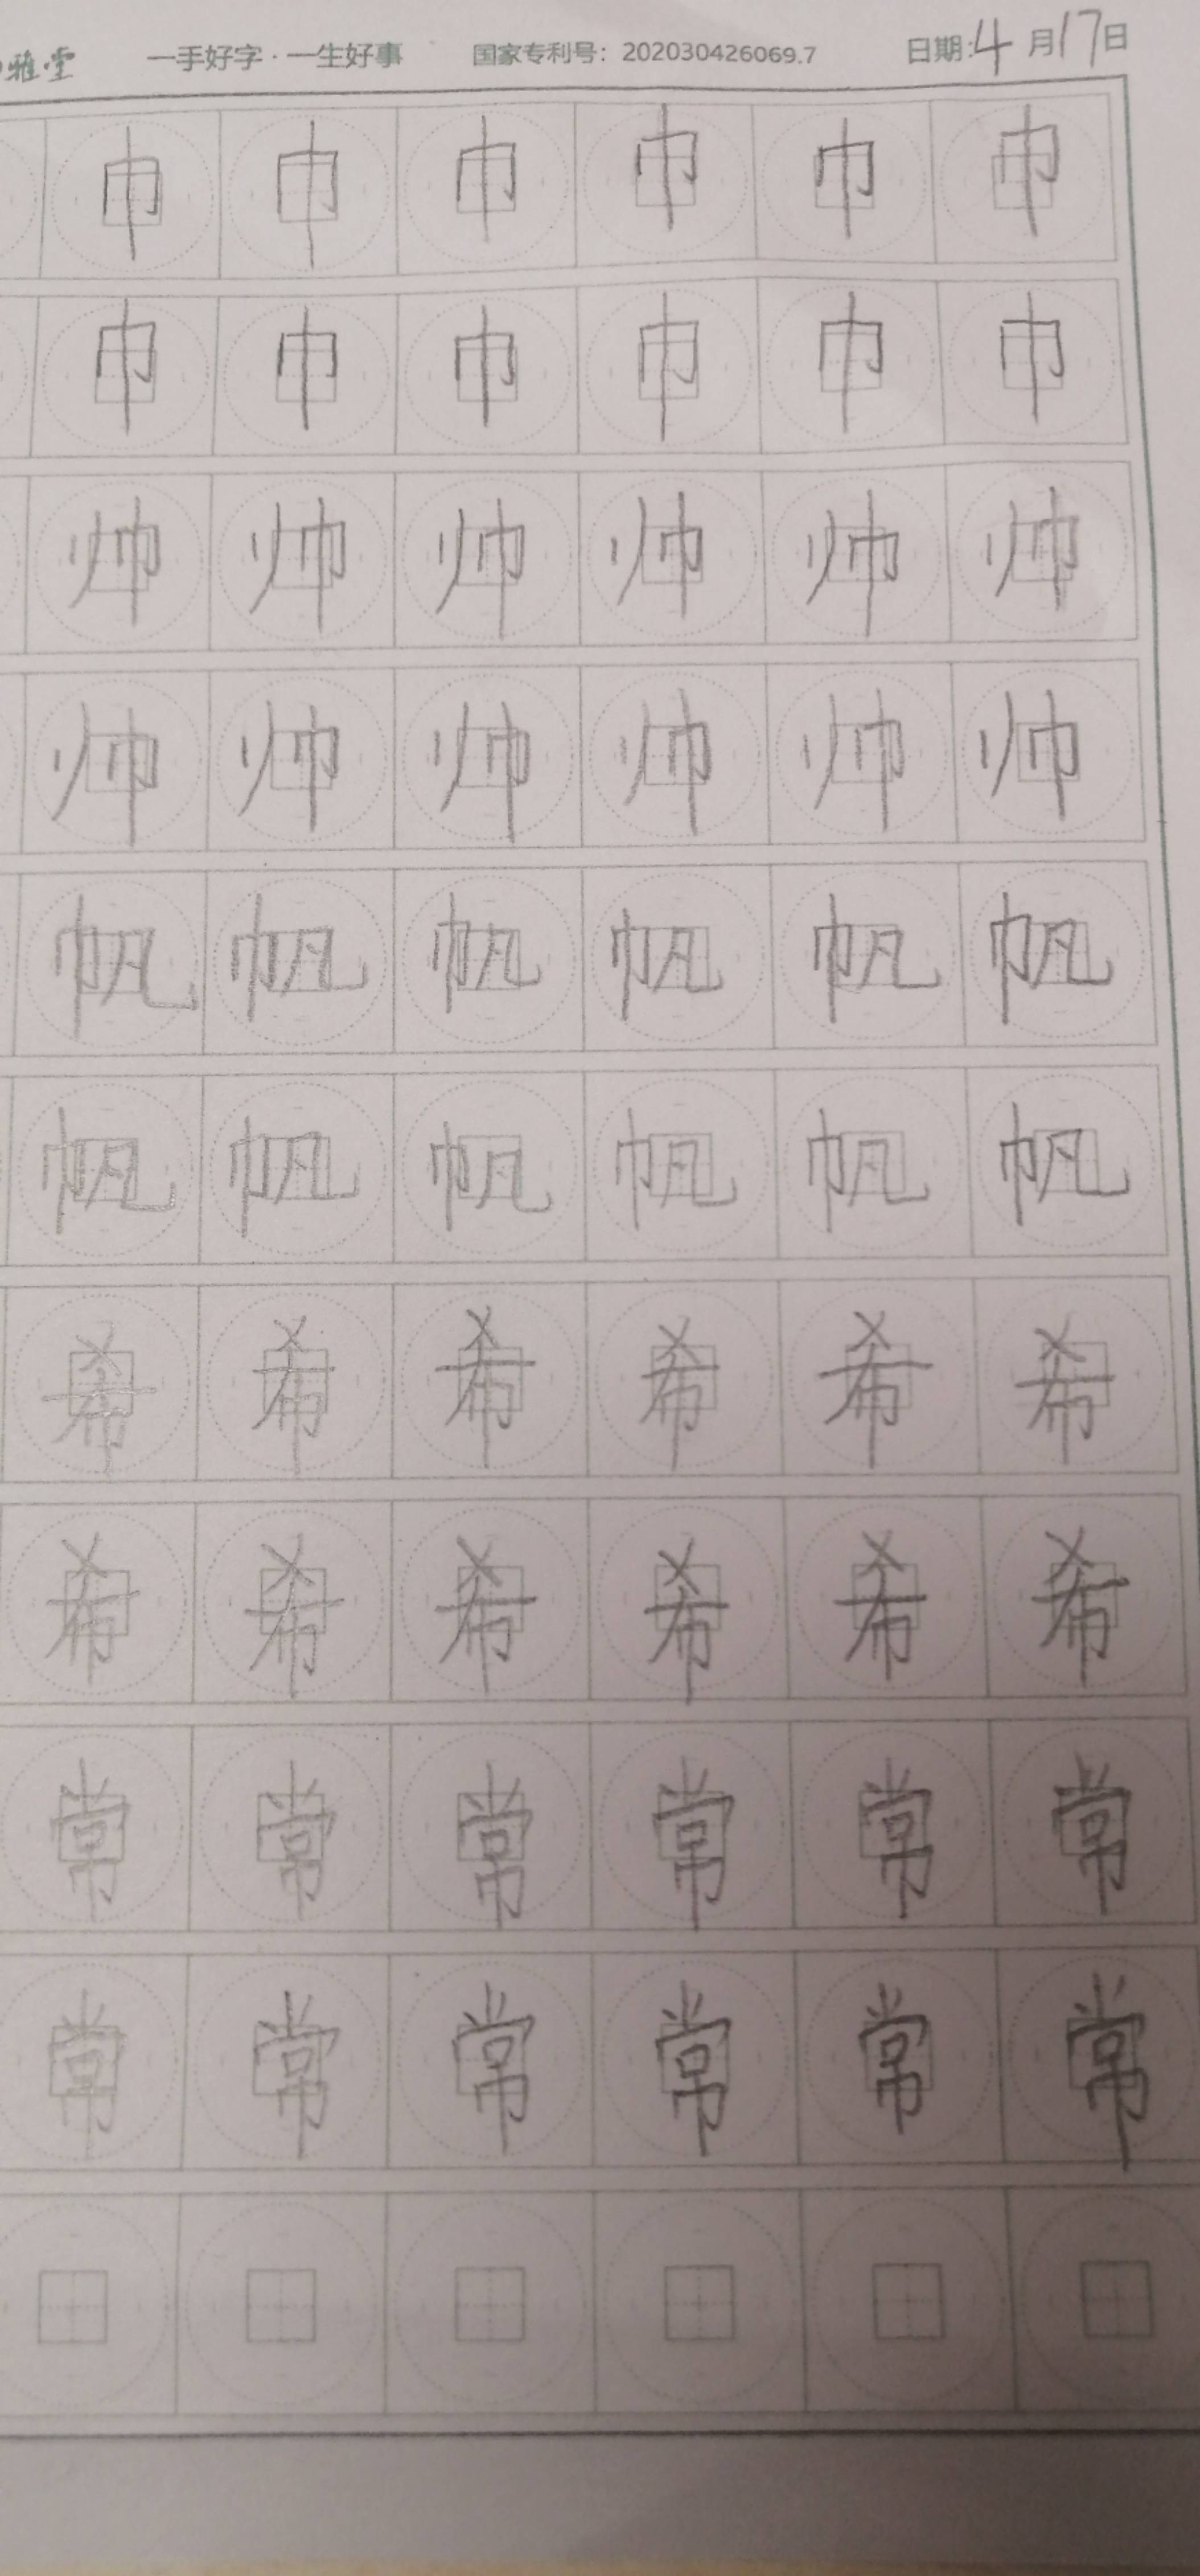 雅堂 一手好字·一生好事 国家专利号：202030426069.7 日期：4月17日
巾 巾 巾 巾 巾 巾
巾 巾 巾 巾 巾 巾
帅 帅 帅 帅 帅 帅
帅 帅 帅 帅 帅 帅
帆 帆 帆 帆 帆 帆
帆 帆 帆 帆 帆 帆
希 希 希 希 希 希
希 希 希 希 希 希
常 常 常 常 常 常
常 常 常 常 常 常